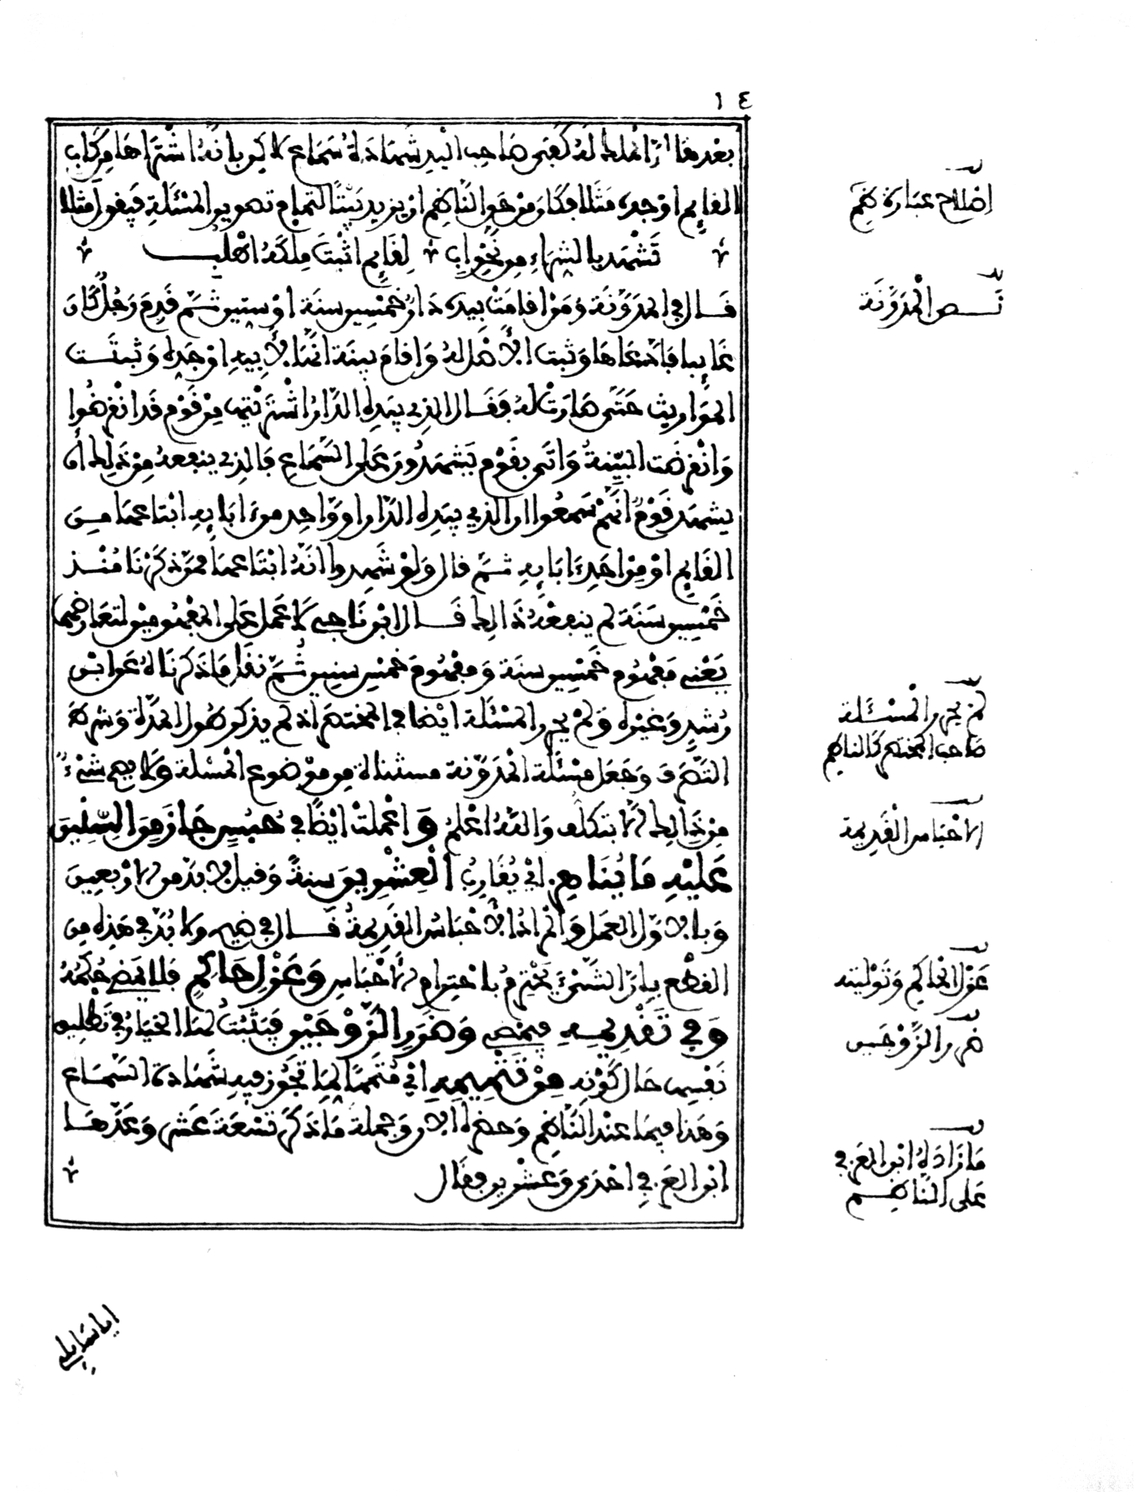 ١٤
بعدها ان الملك له كفى صاحب اليد شهادة سماع لا كن بانه اشتراها من كاب
القايم او جده مثلا فكان من حق الناظم ان يزيد بيتا لتمام تصوير المسئلة فيقول مثلا
تشهد بالشراء من نحو اب لقايم اثبت ملكه اطلب
قال في المدونة ومن اقامت بيده دار خمسين سنة او ستين ثم قدم رجل كان
غايبا فادعاها وثبت الاصل له واقام بينة انها لابيه او جده وثبتت
المواريث حتى صارت له فقال الذي بيده الدار اشتريتها من قوم قد انقرضوا
وانقرضت البينة واتى بقوم يشهدون على السماع فالذي ينفعه من ذلك ان
يشهد قوم انهم سمعوا ان الذي بيده الدار او واحد من ءابايه ابتاعها من
القايم او من احد ءابايه ثم قال ولو شهدوا انه ابتاعها ممن ذكرنا منذ
خمسين سنة لم ينفعه ذالك قال ابن ناجي لا عمل على المفهومين لتعارضهما
يعني مفهوم خمسين سنة ومفهوم خمس سنين ثم نقل ما ذكرناه عن ابن
رشد وغيره ولم يحرر المسئلة ايضا في المختصر اذ لم يذكر طول المدة وشرط
التصرف وجعل مسئلة المدونة مستثناة من موضوع المسئلة ولا يصح شيء
من ذالك الا بتكلف والله اعلم واعملت ايضا في حبس جاز من السنين
عليه ما يناهز اي يقارب العشرين سنة وقيل لابد من الاربعين
وبالاول العمل والمراد الاحباس القديمة قال في ولا بد في هذه من
القطع بان الشيء يحترم باحترام الاحباس وعزل حاكم فلا يمضي حكمه
وفي تقديمه فيمضي وضرر الزوجين فيثبت لها الخيار في تطليق
نفسها حال كونه من تتميم اي متمما لما تجوز فيه شهادة السماع
وهذا فيما عند الناظم وحضره الان وجملة ما ذكر تسعة عشر وعدها
ابن العربي احدى وعشرين فقال
اصلاح عبارة ظم
نص المدونة
لم يحرر المسئلة
صاحب المختصر كالناظم
الاحباس القديمة
عزل الحاكم وتوليته
ضرر الزوجين
ما زاده ابن العربي
على الناظم